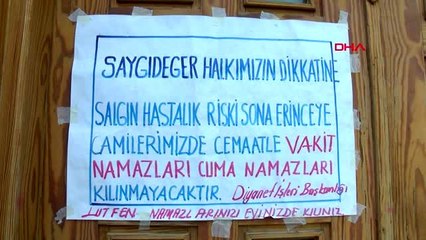 DHA
SAYGIDEĞER HALKIMIZIN DİKKATİNE
SALGIN HASTALIK RİSKİ SONA ERİNCEYE
CAMİLERİMİZDE CEMAATLE VAKİT
NAMAZLARI CUMA NAMAZLARI
KILINMAYACAKTIR. Diyanet İşleri Başkanlığı
LÜTFEN NAMAZLARINIZI EVİNİZDE KILINIZ